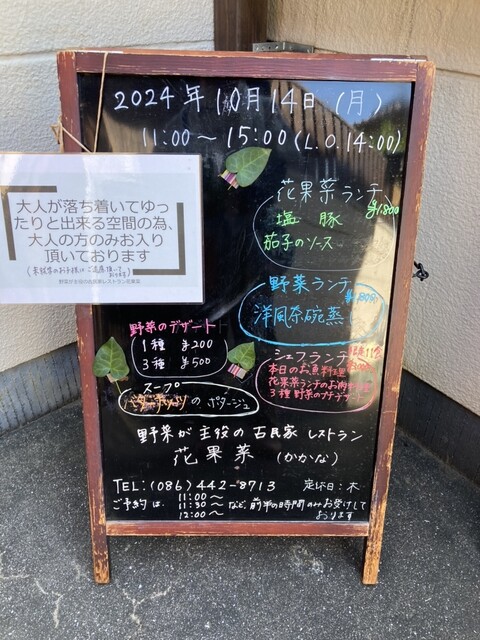 2024年10月14日(月)
11:00〜15:00(L.O.14:00)
大人が落ち着いてゆっ
たりと出来る空間の為、
大人の方のみお入り
頂いております
花果菜ランチ
¥1,800
塩豚
茄子のソース
野菜ランチ
洋風茶碗蒸し
野菜のデザート
1種 ¥200
3種 ¥500
シェフランチ
本日のお魚料理
花果菜ランチのお肉料理
3種野菜のプチデザート
スープ
のポタージュ
野菜が主役の古民家レストラン
花果菜(かかな)
TEL:(086)442-8713 定休日:木
ご予約は、11:00〜
11:30〜
12:00〜
など、前半の時間のみお受けして
おります